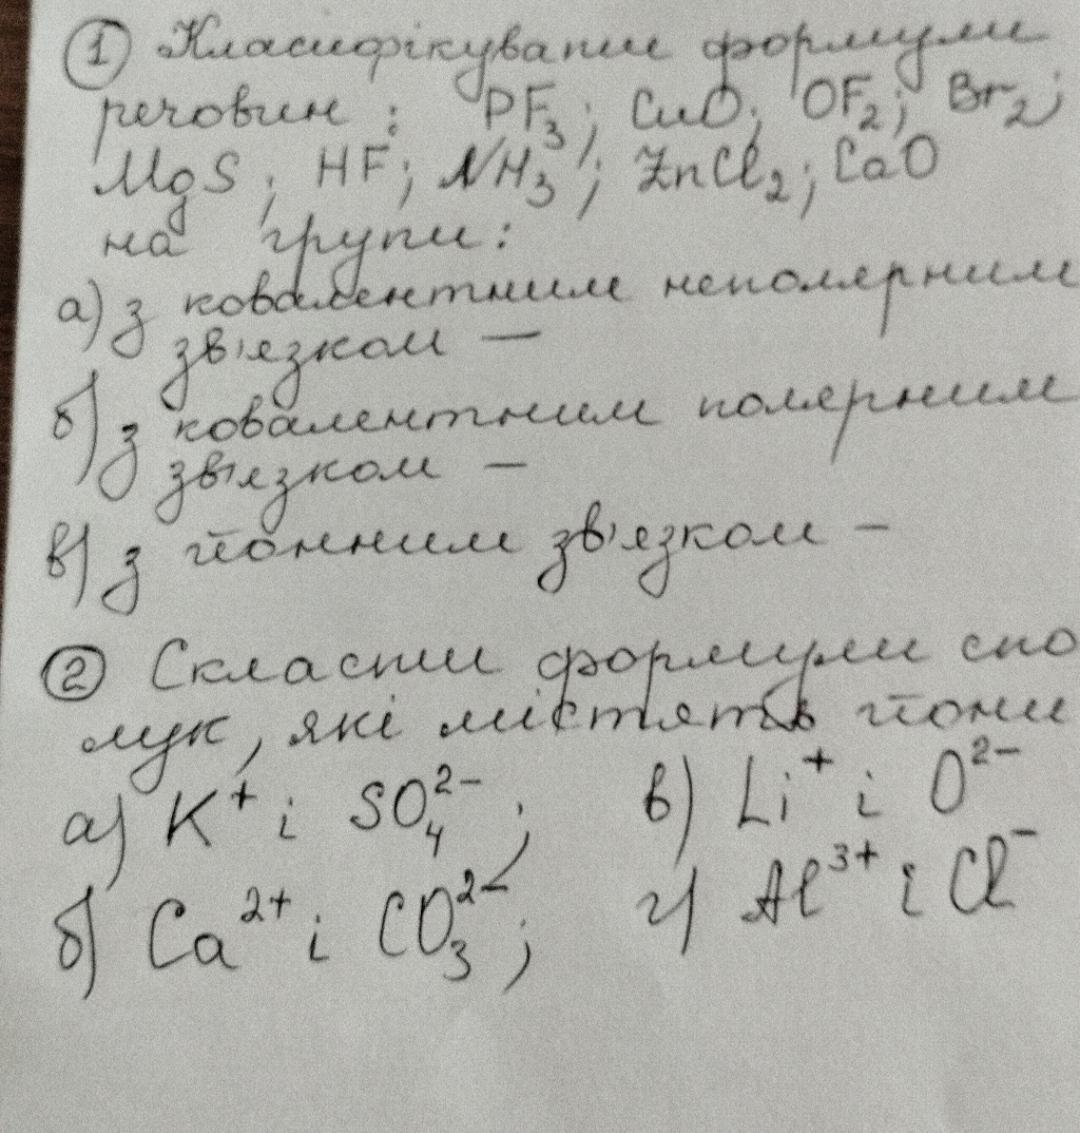 ① Класифікувати формули
речовин : PF₃; CuO; OF₂; Br₂;
MgS; HF; NH₃; ZnCl₂; CaO
на групи:
а) з ковалентним неполярним
зв'язком —
б) з ковалентним полярним
зв'язком —
в) з йонним зв'язком —
② Скласти формули спо
лук, які містять йони
а) K⁺ і SO₄²⁻; в) Li⁺ і O²⁻
б) Ca²⁺ і CO₃²⁻; г) Al³⁺ і Cl⁻